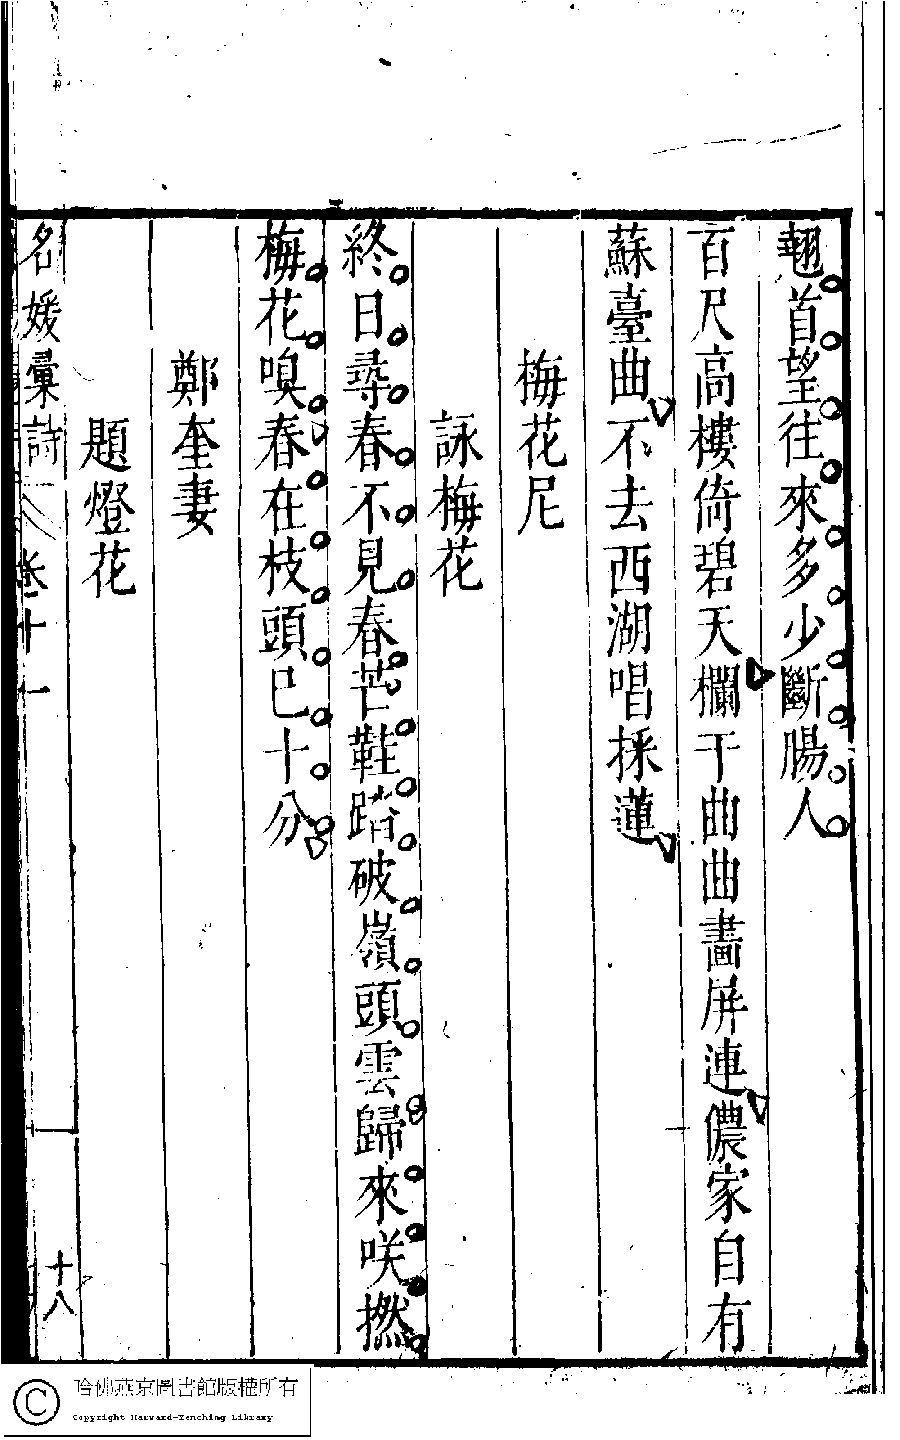 翹首望往來多少斷腸人
百尺高樓倚碧天欄干曲曲畵屏連儂家自有
蘇臺曲不去西湖唱採蓮
梅花尼
詠梅花
終日尋春不見春芒鞋踏破嶺頭雲歸來咲撚
梅花嗅春在枝頭已十分
鄭奎妻
題燈花
名媛彙詩 卷十一 十八
哈佛燕京圖書館版權所有
Copyright Harvard-Yenching Library